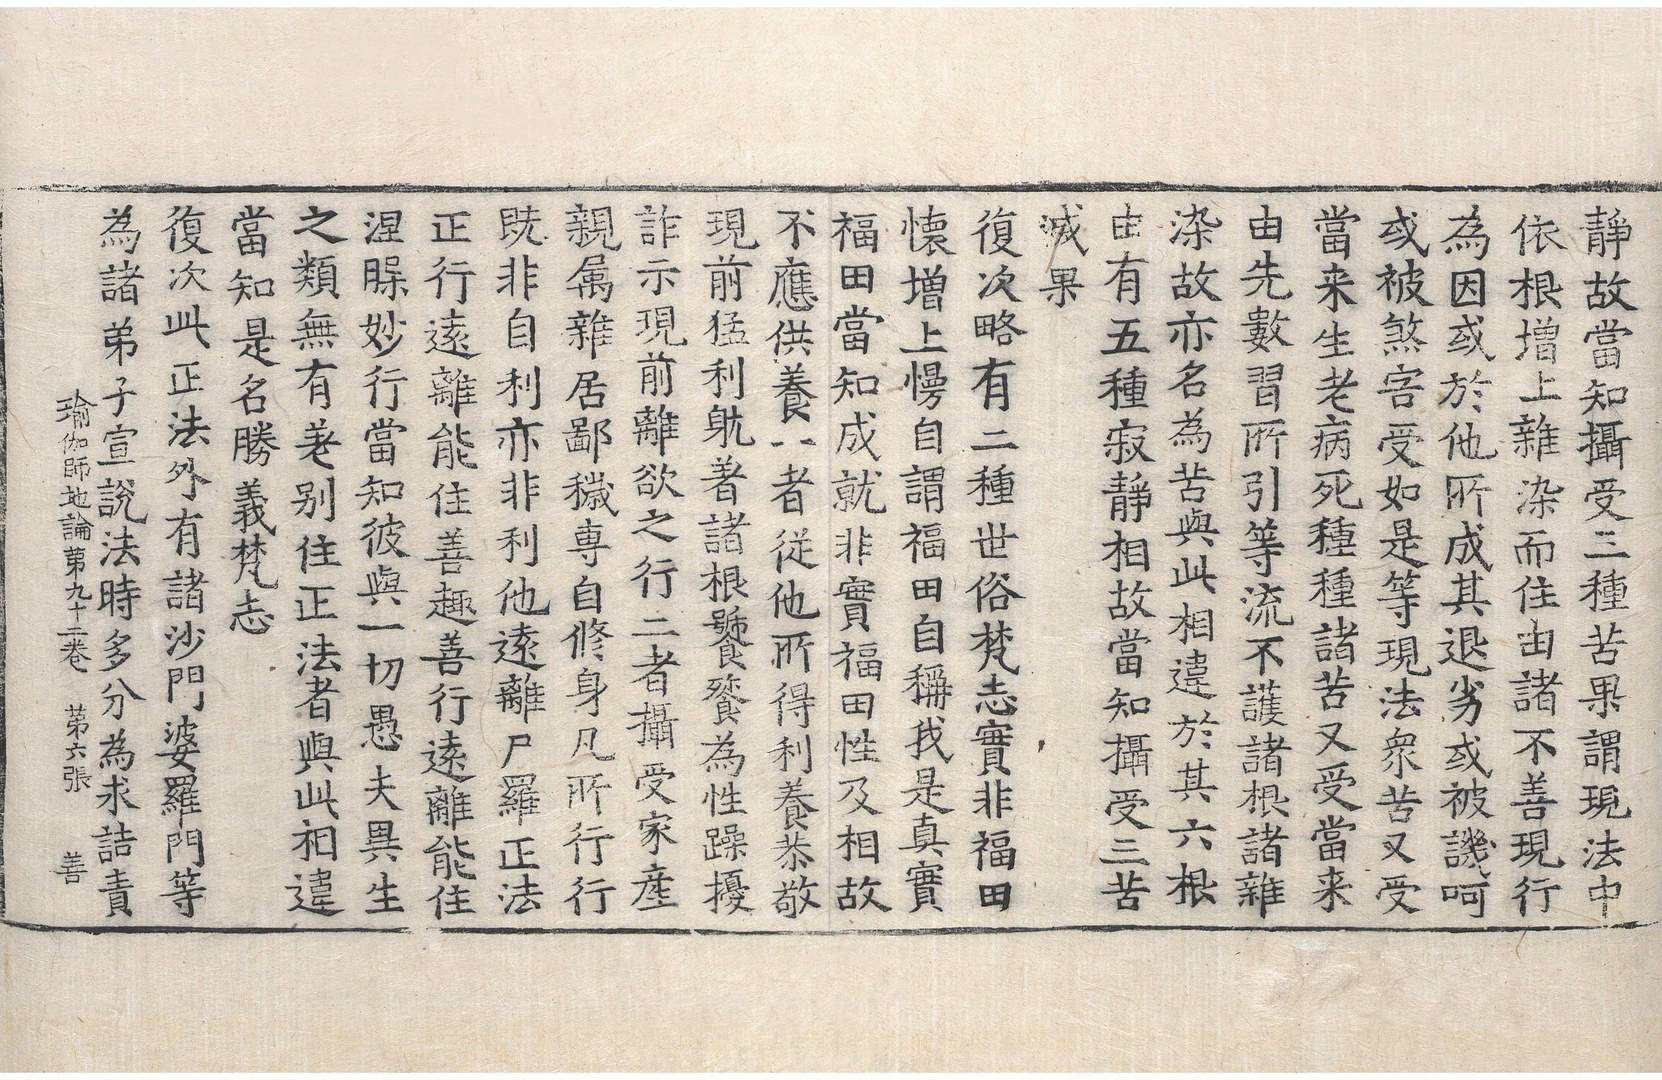 靜故當知攝受三種苦果謂現法中
依根增上雜染而住由諸不善現行
為因或於他所成其退劣或被譏呵
或被煞害受如是等現法衆苦又受
當来生老病死種種諸苦又受當来
由先數習所引等流不護諸根諸雜
染故亦名為苦與此相違於其六根
由有五種寂靜相故當知攝受三苦
滅果
復次略有二種世俗梵志實非福田
懷增上慢自謂福田自稱我是真實
福田當知成就非實福田性及相故
不應供養一者從他所得利養恭敬
現前猛利躭著諸根饕餮為性躁擾
詐示現前離欲之行二者攝受家產
親属雜居鄙穢專自修身凡所行行
既非自利亦非利他遠離尸羅正法
正行遠離能住善趣善行遠離能住
涅槃妙行當知彼與一切愚夫異生
之類無有差别住正法者與此相違
當知是名勝義梵志
復次此正法外有諸沙門婆羅門等
為諸弟子宣說法時多分為求詰責
瑜伽師地論第九十二卷 第六張 善